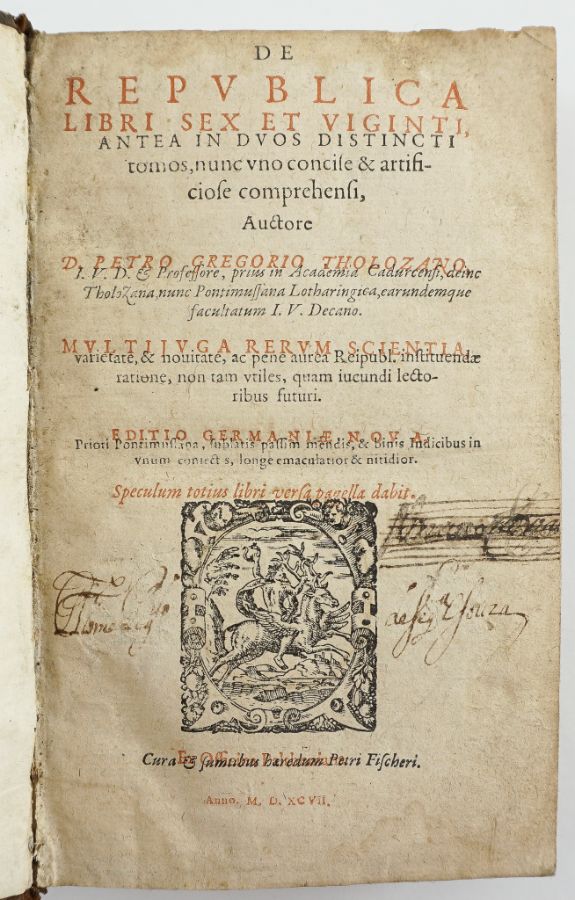 DE
REPVBLICA
LIBRI SEX ET VIGINTI,
ANTEA IN DVOS DISTINCTI
tomos, nunc vno concise & artifi-
ciose comprehensi,
Auctore
D. PETRO GREGORIO THOLOZANO,
I. V. D. & Professore, prius in Academia Cadurcensi, deinc
Tholozana, nunc Pontimussana Lotharingica, earundemque
facultatum I. V. Decano.
MVLTIJVGA RERVM SCIENTIA,
varietate, & nouitate, ac pene aurea Reipubl. instituendæ
ratione, non tam vtiles, quam iucundi lecto-
ribus futuri.
EDITIO GERMANIÆ NOVA,
Priori Pontimussana, sublatis passim mendis, & binis Indicibus in
vnum coniectis, longe emaculatior & nitidior.
Speculum totius libri versa pagella dabit.
Souza
Ex Officina
Cura & sumtibus hæredum Petri Fischeri.
Anno. M. D. XCVII.